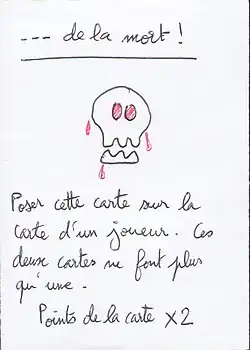 --- de la mort !
Poser cette carte sur la
carte d'un joueur. Ces
deux cartes ne font plus
qu'une.
Points de la carte x2